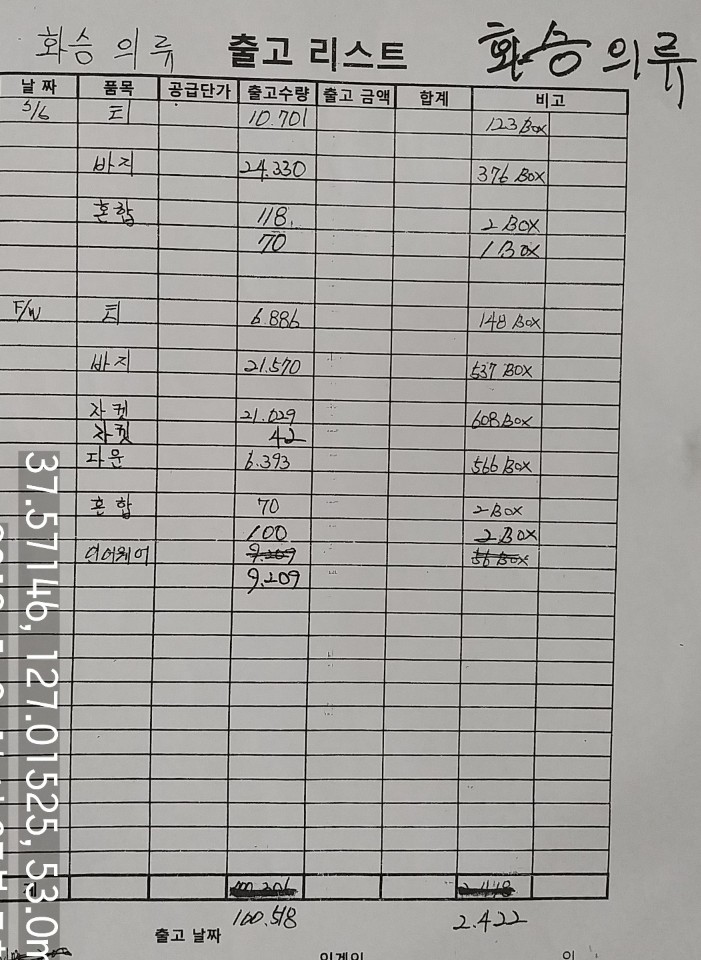 화승 의류 출고 리스트 화승 의류
날 짜 품목 공급단가 출고수량 출고 금액 합계 비고
S/6 티 10.701 123 Box
바지 24.330 376 Box
혼합 118. 2 Box
70 1 Box
F/W 티 6.886 148 Box
바지 21.570 537 Box
자켓 21.029 608 Box
자켓 42
다운 6.393 566 Box
혼합 70 2 Box
100 2 Box
이어웨어 9.209 56 Box
9,209
계
100.518 2.422
출고 날짜
37.57146, 127.01525, 53.0m